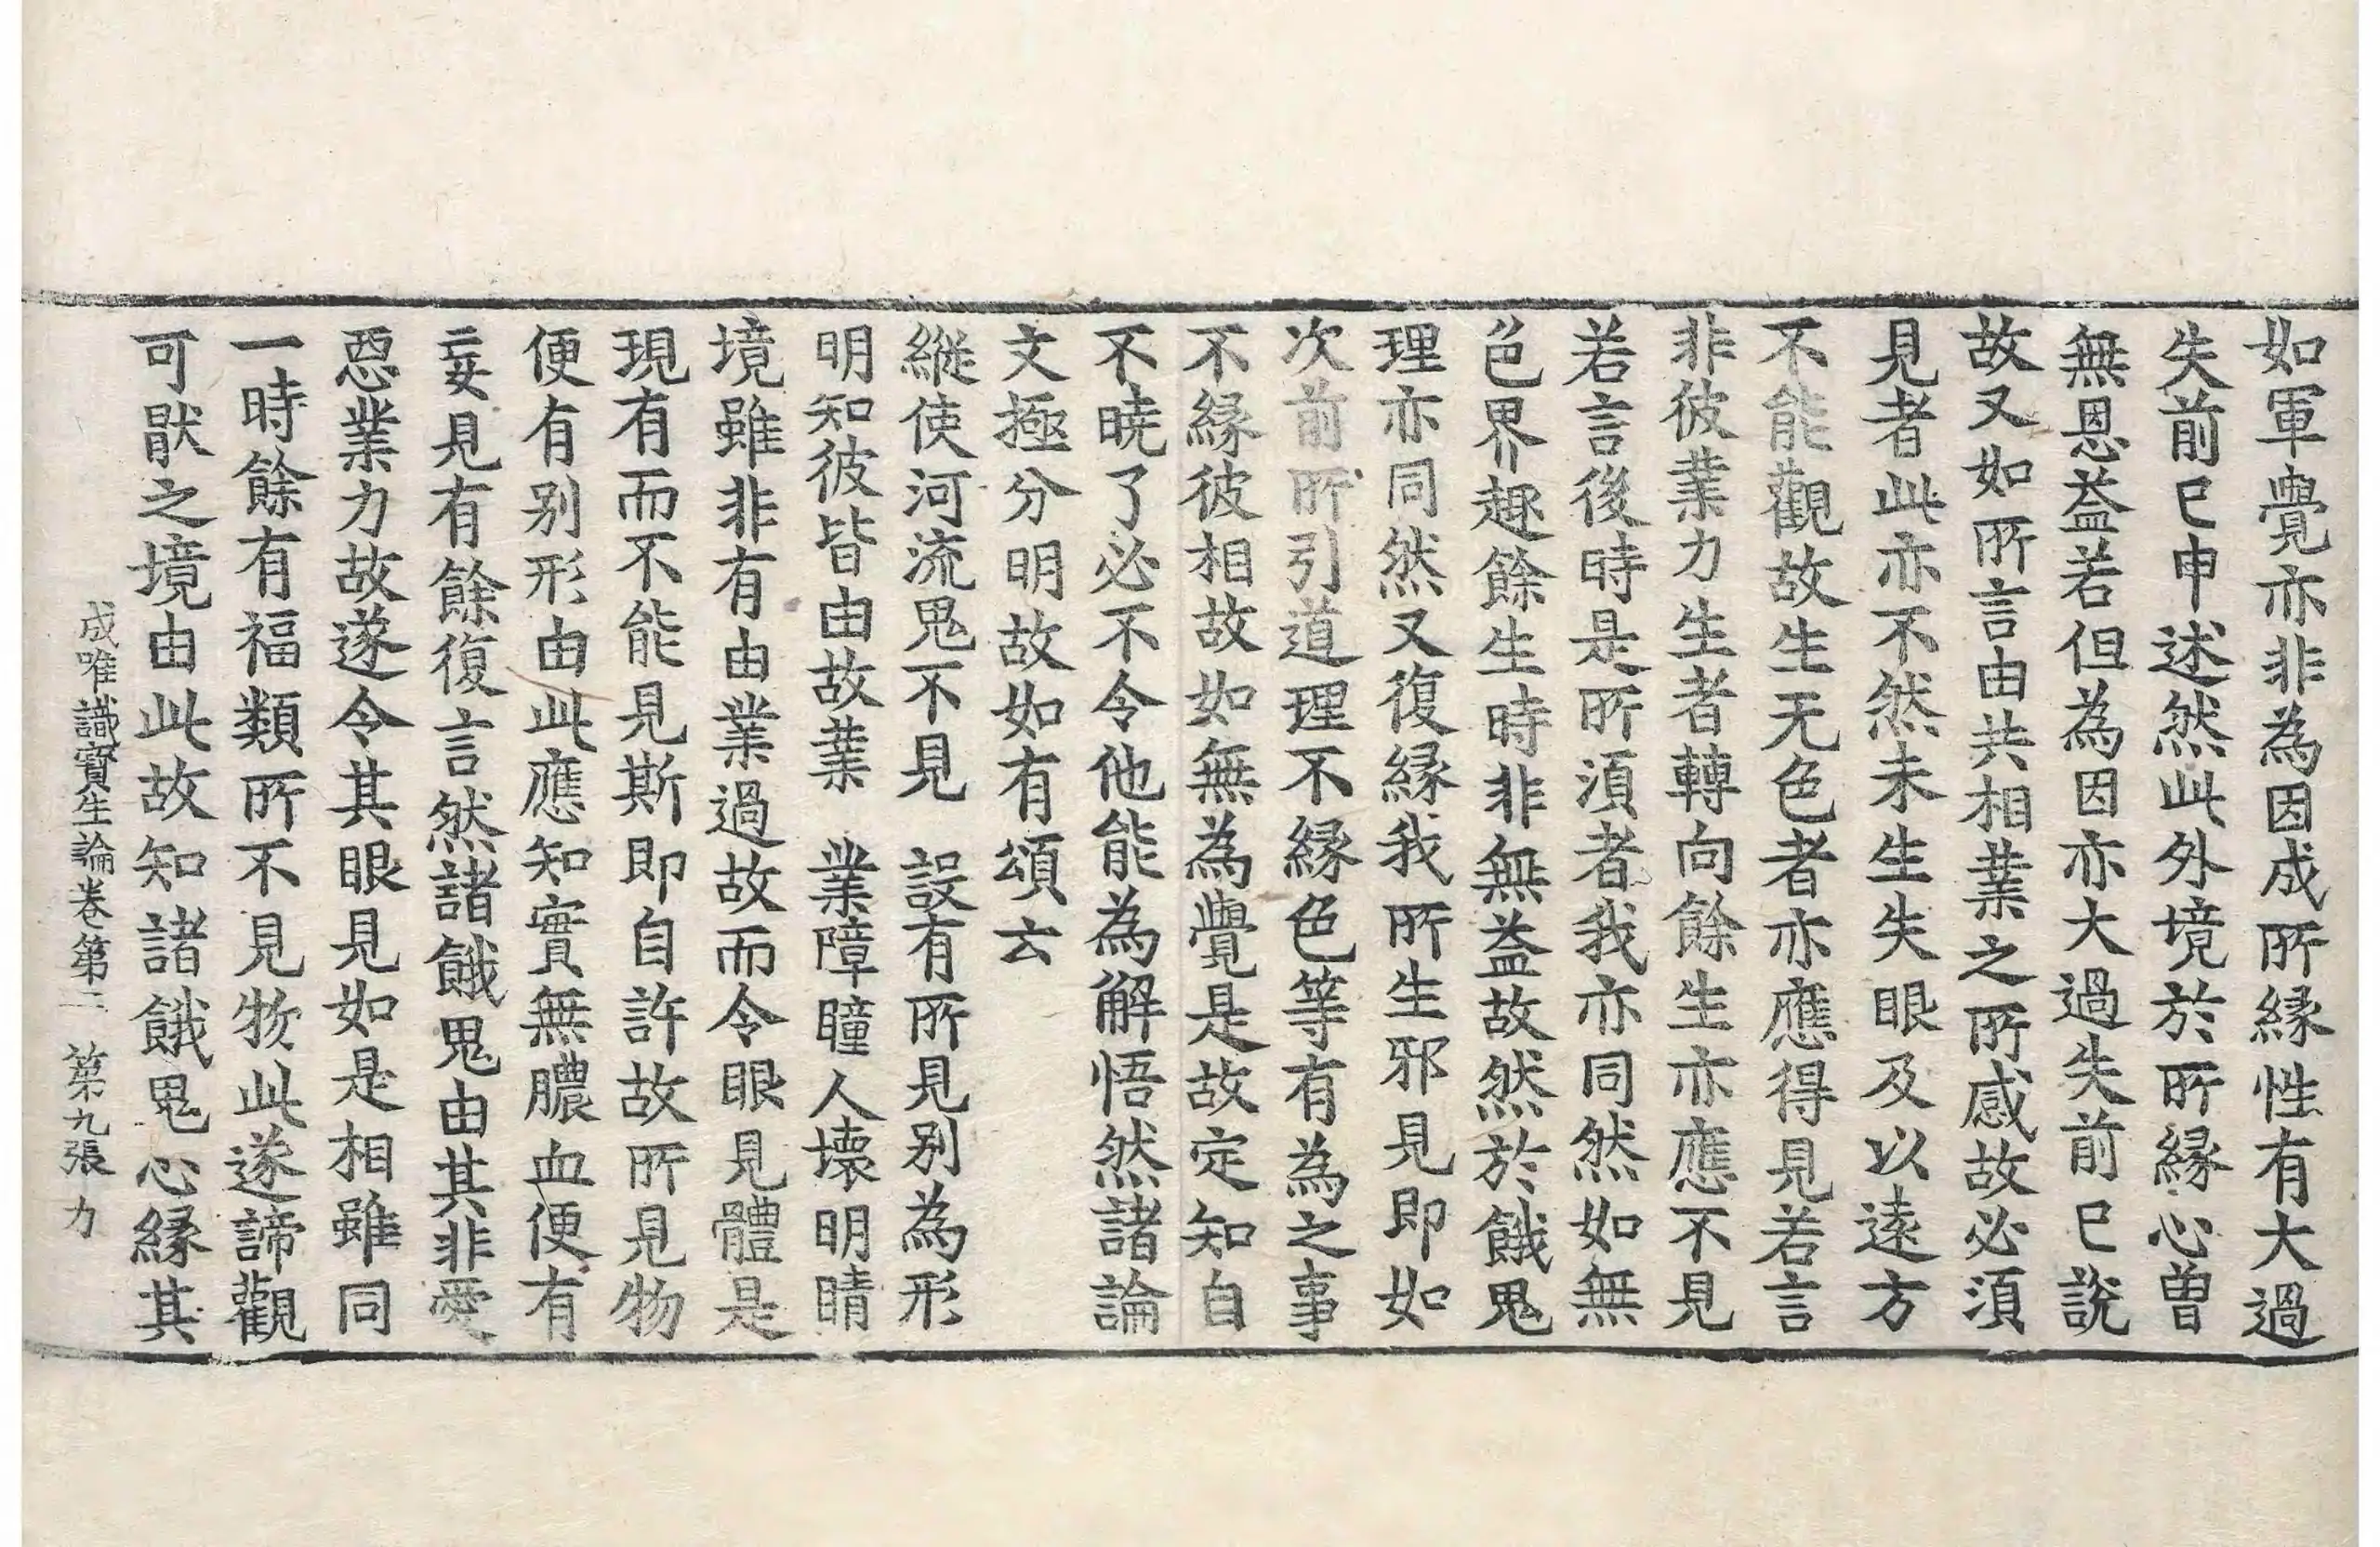 如軍覺亦非為因成所縁性有大過
失前已申述然此外境於所縁心曽
無恩益若但為因亦大過失前已説
故又如所言由共相業之所感故必須
見者此亦不然未生失眼及以逺方
不能觀故生无色者亦應得見若言
非彼業力生者轉向餘生亦應不見
若言後時是所須者我亦同然如無
色界趣餘生時非無益故然於餓鬼
理亦同然又復縁我所生邪見即如
次前所引道理不縁色等有為之事
不縁彼相故如無為覺是故定知自
不曉了必不令他能為解悟然諸論
文極分明故如有頌云
縱使河流鬼不見　設有所見別為形
明知彼皆由故業　業障瞳人壞明睛
境雖非有由業過故而令眼見體是
現有而不能見斯即自許故所見物
便有別形由此應知實無膿血便有
妄見有餘復言然諸餓鬼由其非愛
惡業力故遂令其眼見如是相雖同
一時餘有福類所不見物此遂諦觀
可猒之境由此故知諸餓鬼心縁其
成唯識寶生論卷第二　第九張　力